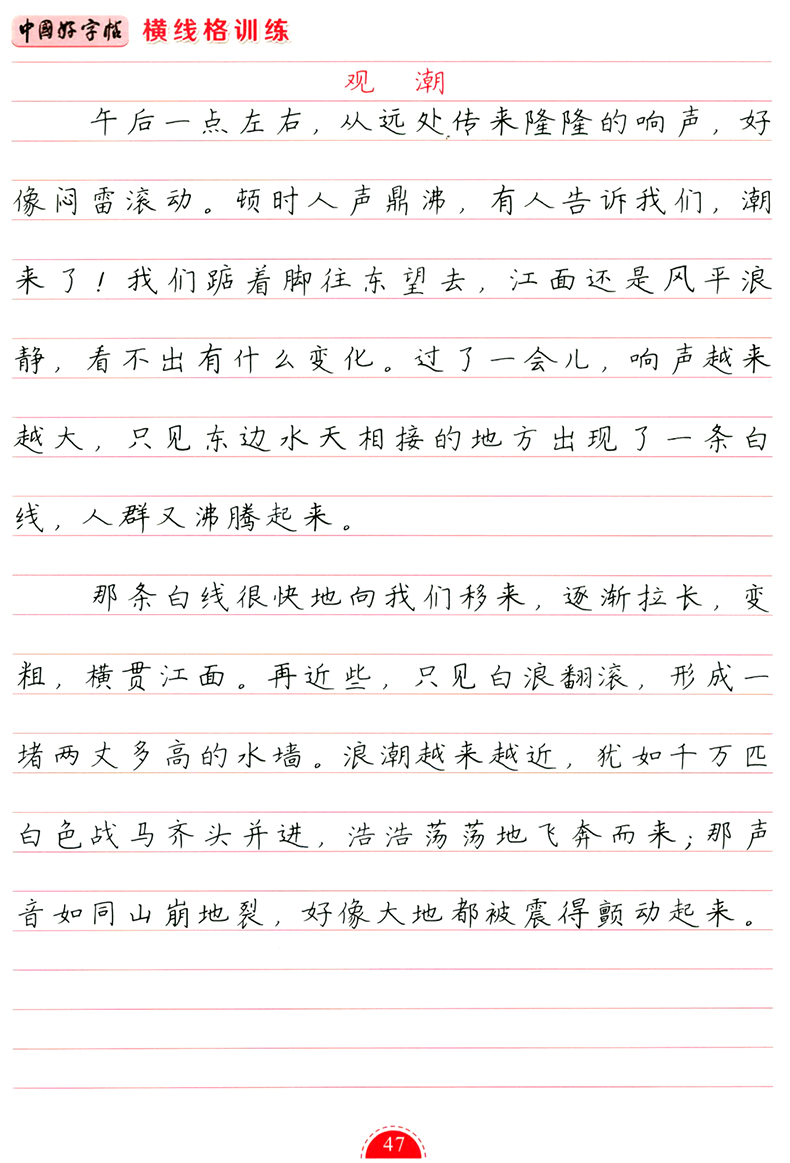 中国好字帖 横线格训练
观 潮
午后一点左右，从远处传来隆隆的响声，好
像闷雷滚动。顿时人声鼎沸，有人告诉我们，潮
来了！我们踮着脚往东望去，江面还是风平浪
静，看不出有什么变化。过了一会儿，响声越来
越大，只见东边水天相接的地方出现了一条白
线，人群又沸腾起来。
那条白线很快地向我们移来，逐渐拉长，变
粗，横贯江面。再近些，只见白浪翻滚，形成一
堵两丈多高的水墙。浪潮越来越近，犹如千万匹
白色战马齐头并进，浩浩荡荡地飞奔而来；那声
音如同山崩地裂，好像大地都被震得颤动起来。
47